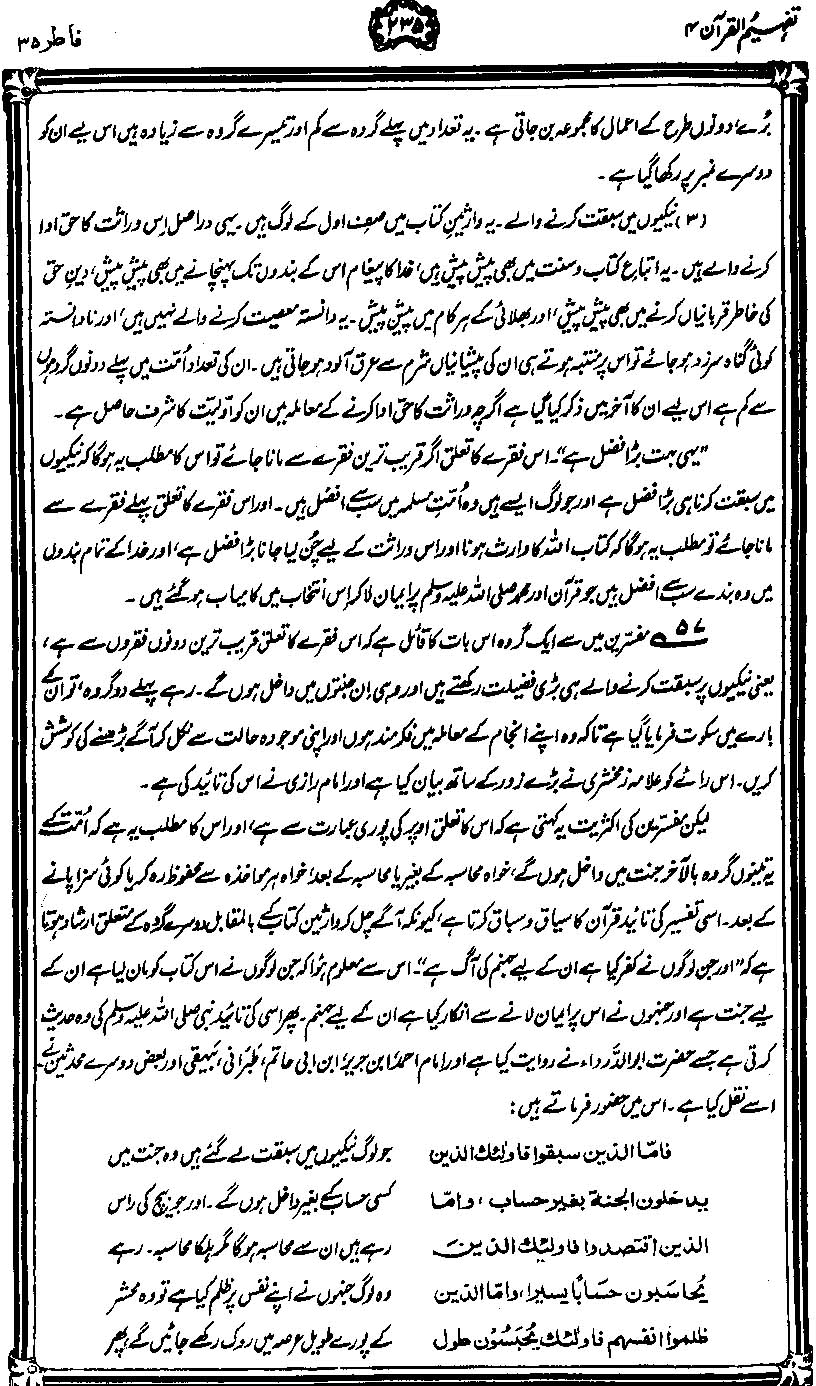 تفہیم القرآن ۴
۲۳۵
فاطر ۳۵
بُرے، دونوں طرح کے اعمال کا مجموعہ بن جاتی ہے۔ یہ تعداد میں پہلے گروہ سے کم اور تیسرے گروہ سے زیادہ ہیں اس لیے ان کو
دوسرے نمبر پر رکھا گیا ہے۔
(۳) نیکیوں میں سبقت کرنے والے۔ یہ وارثینِ کتاب میں صفِ اول کے لوگ ہیں۔ یہی دراصل اِس وراثت کا حق ادا
کرنے والے ہیں۔ یہ اتباعِ کتاب و سنت میں بھی پیش پیش ہیں، خدا کا پیغام اس کے بندوں تک پہنچانے میں بھی پیش پیش، دینِ حق
کی خاطر قربانیاں کرنے میں بھی پیش پیش، اور بھلائی کے ہر کام میں پیش پیش۔ یہ دانستہ معصیت کرنے والے نہیں ہیں، اور نادانستہ
کوئی گناہ سرزد ہو جائے تو اس پر متنبہ ہوتے ہی ان کی پیشانیاں شرم سے عرق آلود ہو جاتی ہیں۔ ان کی تعداد اُمّت میں پہلے دونوں گروہوں
سے کم ہے اس لیے ان کا آخر میں ذکر کیا گیا ہے اگرچہ وراثت کا حق ادا کرنے کے معاملہ میں ان کو اوّلیّت کا شرف حاصل ہے۔
”یہی بہت بڑا فضل ہے“۔ اس فقرے کا تعلق اگر قریب ترین فقرے سے مانا جائے تو اس کا مطلب یہ ہوگا کہ نیکیوں
میں سبقت کرنا ہی بڑا فضل ہے اور جو لوگ ایسے ہیں وہ اُمّتِ مسلمہ میں سب سے افضل ہیں۔ اور اس فقرے کا تعلق پہلے فقرے سے
مانا جائے تو مطلب یہ ہوگا کہ کتاب اللہ کا وارث ہونا اور اس وراثت کے لیے چُن لیا جانا بڑا فضل ہے، اور خدا کے تمام بندوں
میں وہ بندے سب سے افضل ہیں جو قرآن اور محمد صلی اللہ علیہ وسلم پر ایمان لا کر اِس انتخاب میں کامیاب ہو گئے ہیں۔
۵۷ مفسّرین میں سے ایک گروہ اس بات کا قائل ہے کہ اس فقرے کا تعلق قریب ترین دونوں فقروں سے ہے،
یعنی نیکیوں پر سبقت کرنے والے ہی بڑی فضیلت رکھتے ہیں اور وہی اِن جنتوں میں داخل ہوں گے۔ رہے پہلے دو گروہ، تو اُن کے
بارے میں سکوت فرمایا گیا ہے تاکہ وہ اپنے انجام کے معاملہ میں فکر مند ہوں اور اپنی موجودہ حالت سے نکل کر آگے بڑھنے کی کوشش
کریں۔ اس رائے کو علامہ زمخشری نے بڑے زور کے ساتھ بیان کیا ہے اور امام رازی نے اس کی تائید کی ہے۔
لیکن مفسّرین کی اکثریت یہ کہتی ہے کہ اس کا تعلق اوپر کی پوری عبارت سے ہے، اور اس کا مطلب یہ ہے کہ اُمّت کے
یہ تینوں گروہ بالآخر جنت میں داخل ہوں گے، خواہ محاسبہ کے بغیر یا محاسبہ کے بعد، خواہ ہر مواخذہ سے محفوظ رہ کر یا کوئی سزا پانے
کے بعد۔ اسی تفسیر کی تائید قرآن کا سیاق و سباق کرتا ہے، کیونکہ آگے چل کر وارثینِ کتاب کے بالمقابل دوسرے گروہ کے متعلق ارشاد ہوتا
ہے کہ ”اور جن لوگوں نے کفر کیا ہے ان کے لیے جہنم کی آگ ہے“۔ اس سے معلوم ہوا کہ جن لوگوں نے اس کتاب کو مان لیا ہے ان کے
لیے جنت ہے اور جنہوں نے اس پر ایمان لانے سے انکار کیا ہے ان کے لیے جہنم۔ پھر اسی کی تائید نبی صلی اللہ علیہ وسلم کی وہ حدیث
کرتی ہے جسے حضرت ابو الدَّرداء نے روایت کیا ہے اور امام احمد، ابن جریر، ابن ابی حاتم، طَبَرانی، بَیہقی اور بعض دوسرے محدثین نے
اسے نقل کیا ہے۔ اس میں حضور فرماتے ہیں:
فامّا الذین سبقوا فاولٰئک الذین
یدخلون الجنة بغیر حساب، وامّا
الذین اقتصدوا فاولٰئک الذین
یُحاسَبون حسابًا یسیرا، وامّا الذین
ظلموا انفسهم فاولٰئک یُحبَسُون طول
جو لوگ نیکیوں میں سبقت لے گئے ہیں وہ جنت میں
کسی حساب کے بغیر داخل ہوں گے۔ اور جو بیچ کی راس
رہے ہیں ان سے محاسبہ ہوگا مگر ہلکا محاسبہ۔ رہے
وہ لوگ جنہوں نے اپنے نفس پر ظلم کیا ہے تو وہ محشر
کے پورے طویل عرصہ میں روک رکھے جائیں گے، پھر